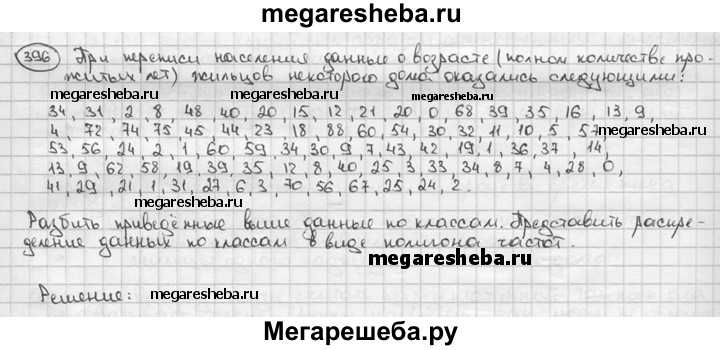 megaresheba.ru
396 При переписи населения данные о возрасте (полном количестве про-
житых лет) жильцов некоторого дома оказались следующими:
megaresheba.ru megaresheba.ru
34, 31, 2, 8, 48, 40, 20, 15, 12, 21, 20, 0, 68, 39, 35, 16, 13, 9,
4, 72, 74, 75, 45, 44, 23, 18, 88, 60, 54, 30, 32, 11, 10, 5, 57
53, 56, 24, 2, 1, 60, 59, 34, 30, 9, 7, 43, 42, 19, 1, 36, 37, 14,
megaresheba.ru megaresheba.ru
13, 9, 62, 58, 19, 39, 35, 12, 8, 40, 25, 3, 33, 34, 8, 7, 4, 28, 0,
41, 29, 21, 1, 31, 27, 6, 3, 70, 56, 67, 25, 24, 2.
megaresheba.ru megaresheba.ru
Разбить приведённые выше данные по классам. Представить распре-
деление данных по классам в виде полигона частот.
megaresheba.ru
Решение: megaresheba.ru megaresheba.ru
Мегарешеба.ру